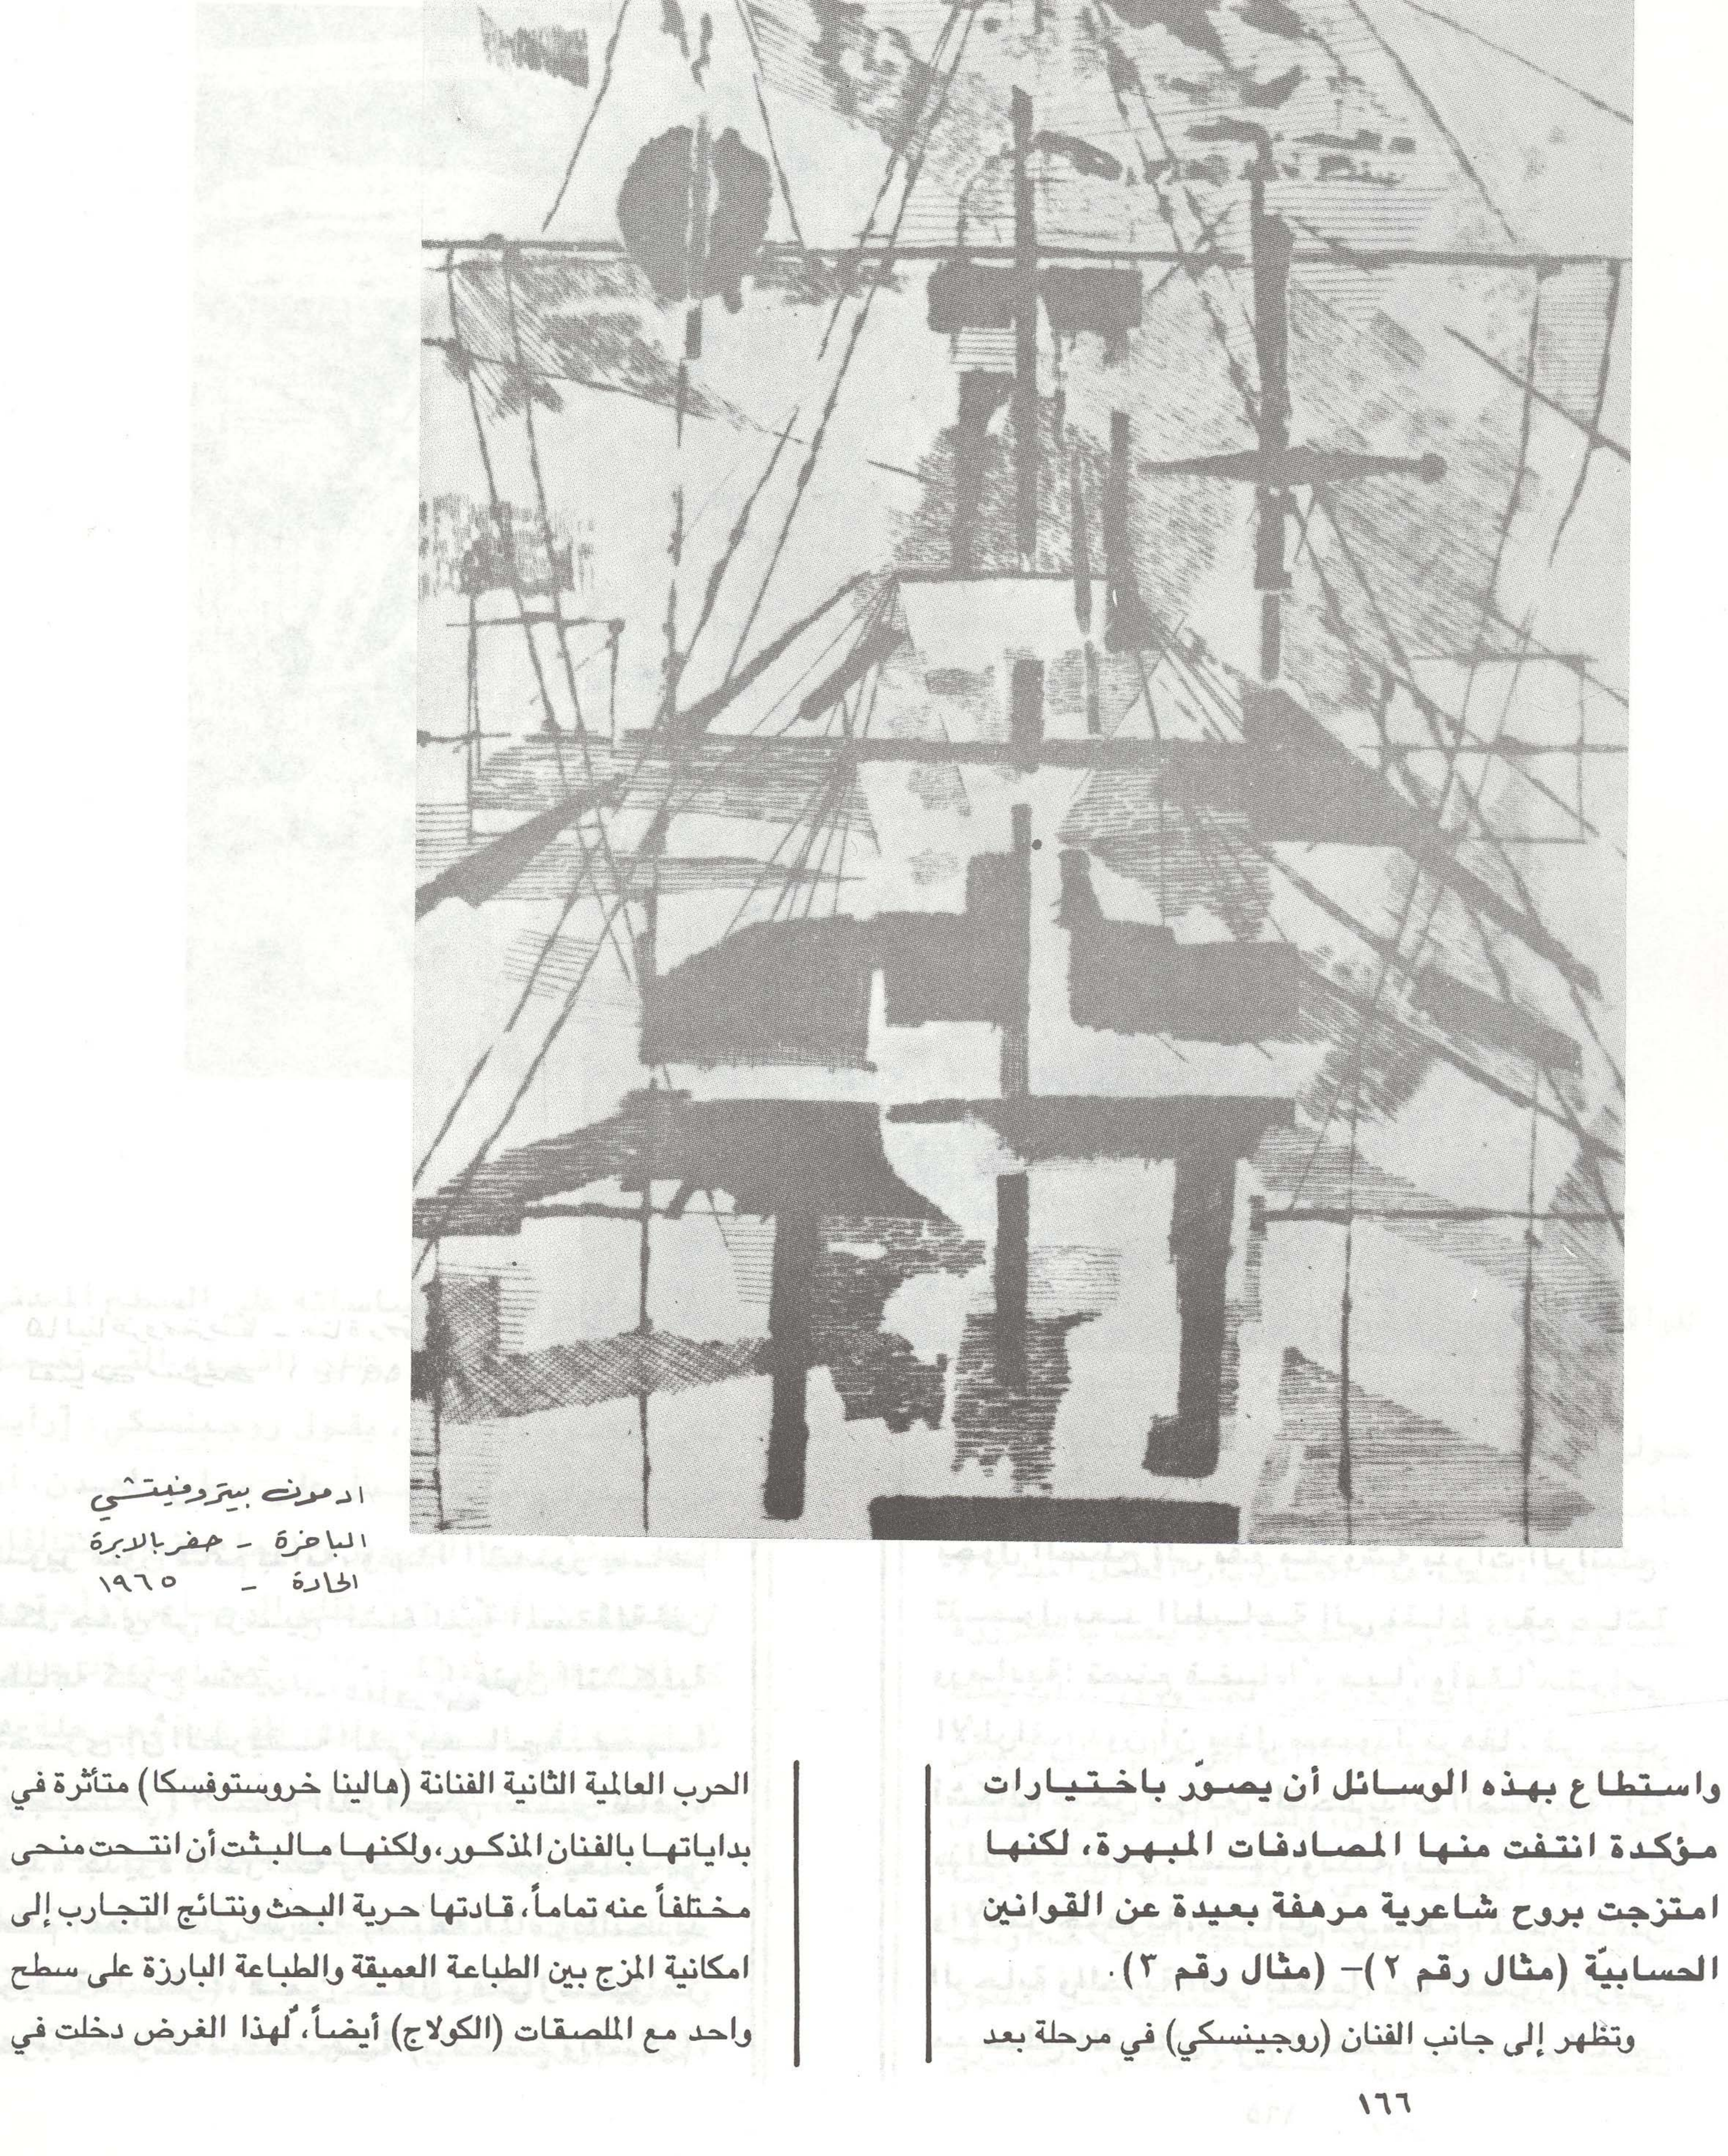 ادمون بيتروفيتشي
الباخرة - حفر بالابرة
الحادة - ١٩٦٥
واستطاع بهذه الوسائل أن يصوّر باختيارات
مؤكدة انتفت منها المصادفات المبهرة، لكنها
امتزجت بروح شاعرية مرهفة بعيدة عن القوانين
الحسابيّة (مثال رقم ٢)– (مثال رقم ٣).
وتظهر إلى جانب الفنان (روجينسكي) في مرحلة بعد
الحرب العالمية الثانية الفنانة (هالينا خروستوفسكا) متأثرة في
بداياتها بالفنان المذكور، ولكنها مالبثت أن انتحت منحى
مختلفاً عنه تماماً، قادتها حرية البحث ونتائج التجارب إلى
امكانية المزج بين الطباعة العميقة والطباعة البارزة على سطح
واحد مع الملصقات (الكولاج) أيضاً، لهذا الغرض دخلت في
١٦٦